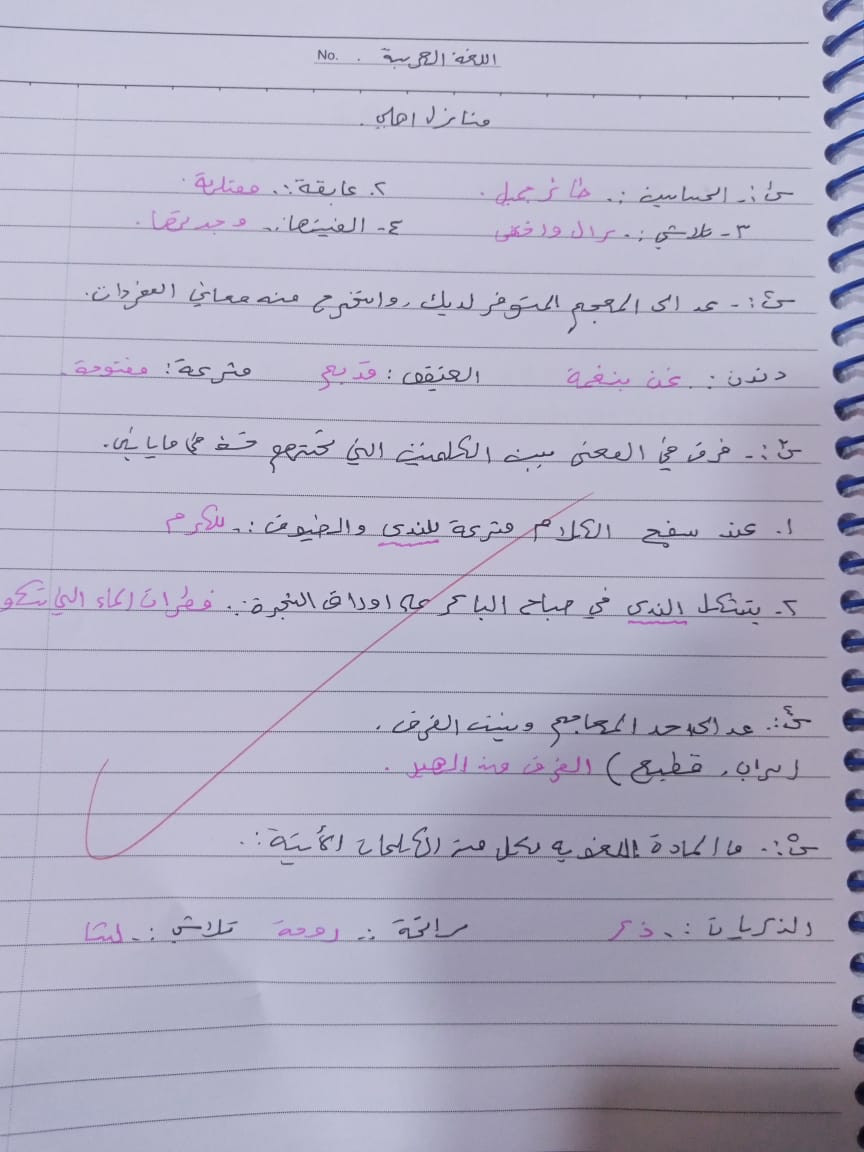 اللغة العربية No. .
منازل اهلي.
س١:- الحساسين :. طائر جميل. ٢. عابقة :. ممتلئة.
٣- تلاشي :. زال واختفى ٤- الفيتها :. وجدتها.
س٢:- عد الى المعجم المتوفر لديك، واستخرج منه معاني المفردات.
دندن :. غن بنغمة العتيق : قديم مترعة : مفتوحة.
س٣:- فرق في المعنى بين الكلمتين التي تحتهم خط في ما يأتي.
١. عند سفح الكلام مترعة للندى والضيوف :. للكرم
٢. يتشكل الندى في صباح الباكر على اوراق الشجرة :. قطرات الماء التي تتكو
س٤:. عد الى احد المعاجم وبين الفرق.
(سراب، قطيع) الفرق من الهير.
س٥:. ما المادة اللغويه لكل من الكلمات الأتية :.
الذكريات :. ذكر رائحة :. روحة تلاشي :. لشا